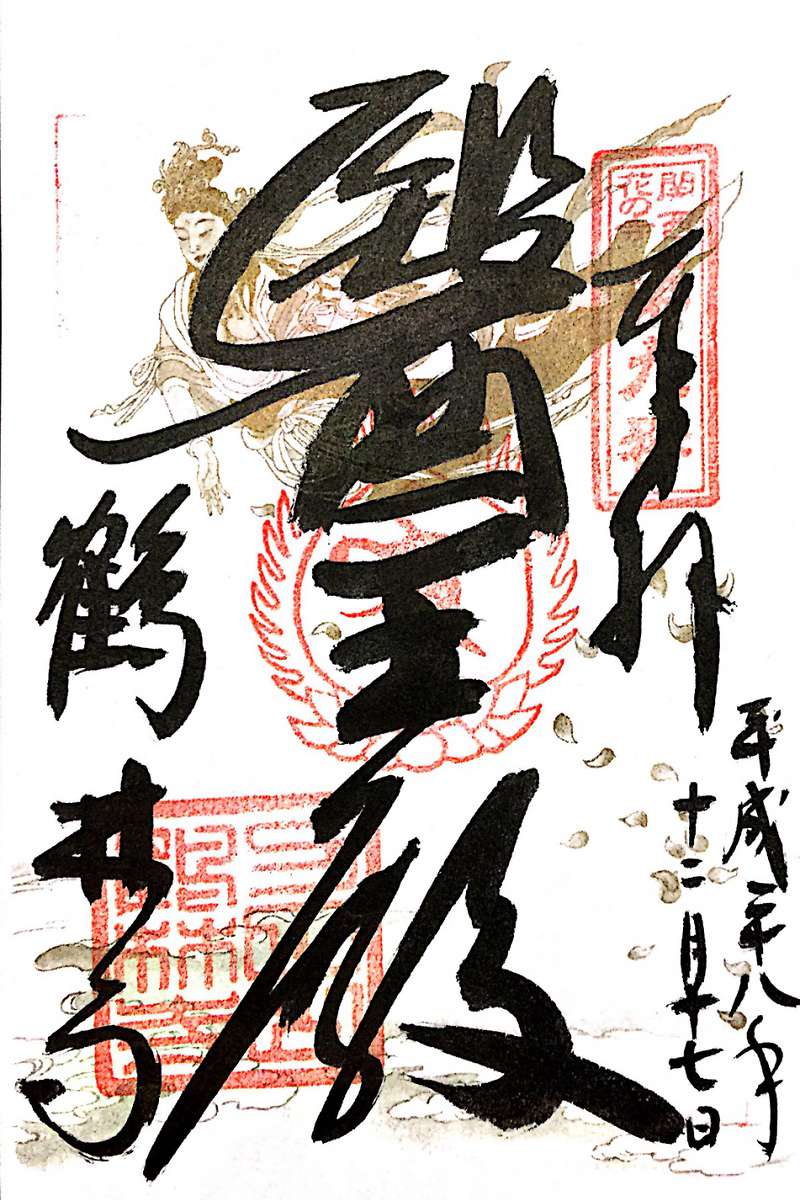 奉拝
平成二十八年
十二月十七日
醫王殿
鶴林寺